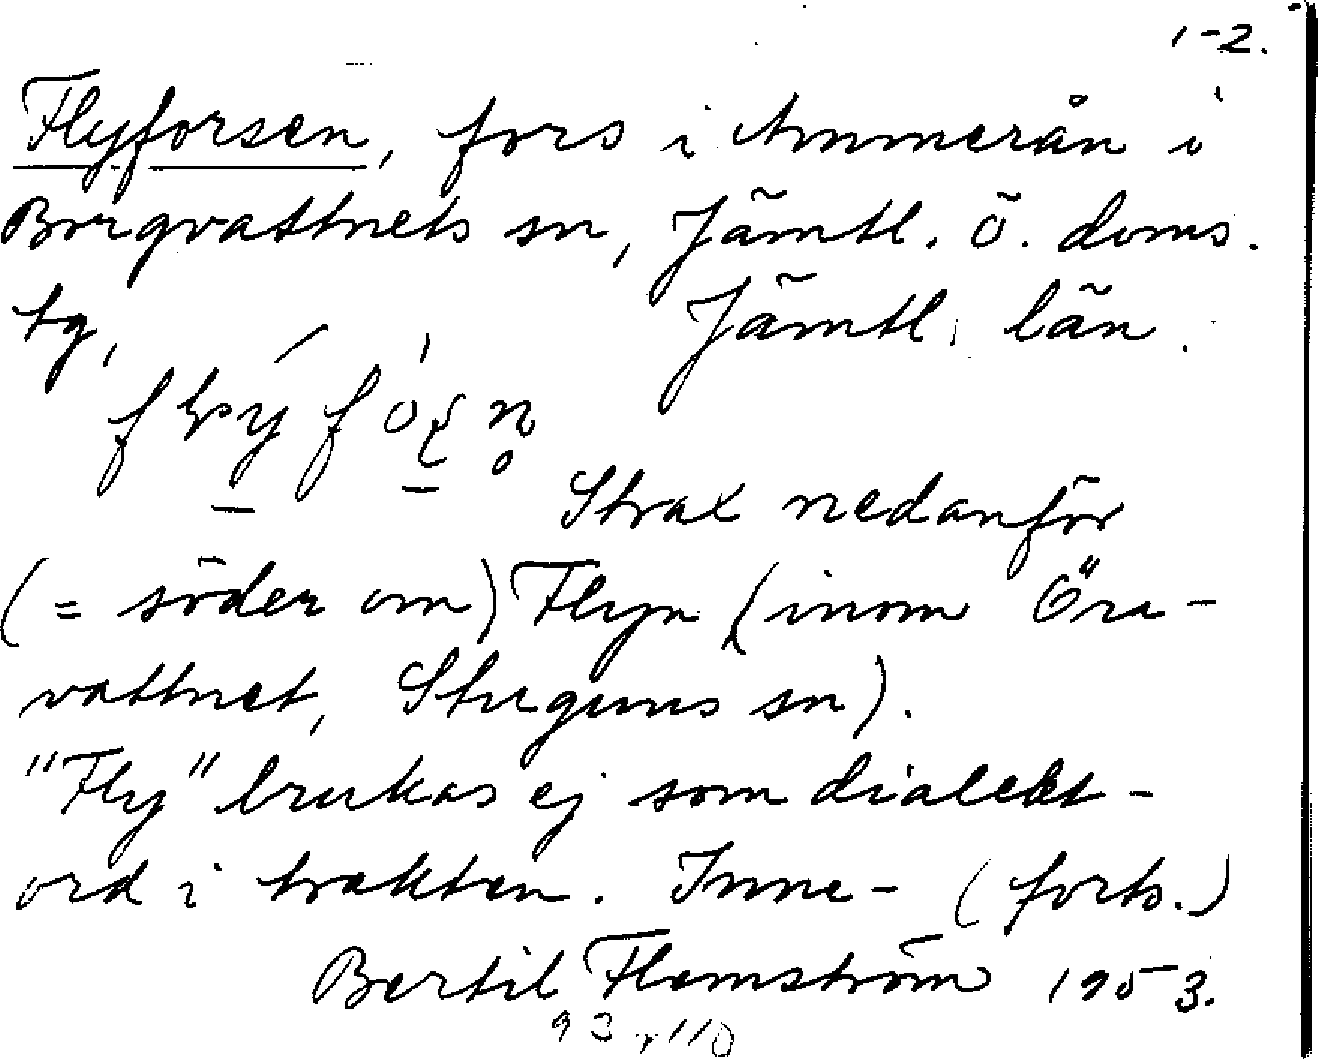 1-2.
Flyforsen, fors i Ammerån i
Borgvattnets sn, Jämtl. ö. doms.
tg, Jämtl. län.
Strax nedanför
(= söder om) Flyn (inom Öra-
vattnet, Stuguns sn).
"Fly" brukas ej som dialekt-
ord i trakten. Inne- (forts.)
Bertil Flemström 1953.